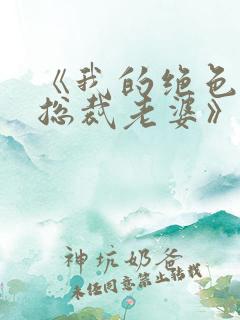 《我的绝色
总裁老婆》
神坑奶爸
未经同意禁止转载